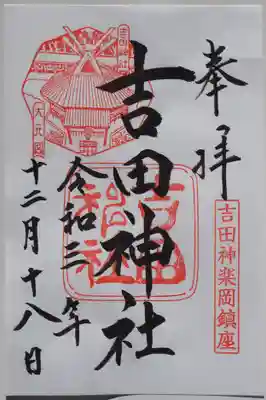 奉拝
吉田神楽岡鎮座
吉田神社
吉田神社
大元宮
令和三年
十二月十八日